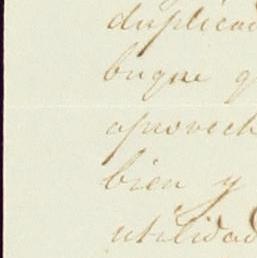 duplicad
buque q
aprovech
bien y
utilidad